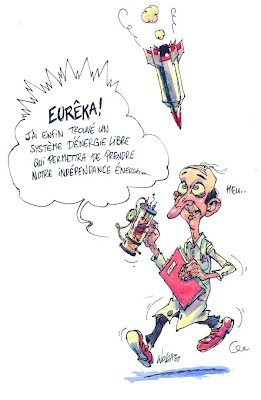 EURÊKA!
J'AI ENFIN TROUVÉ UN
SYSTÈME D'ÉNERGIE LIBRE
QUI PERMETTRA DE PRENDRE
NOTRE INDÉPENDANCE ÉNERGÉ...
HEU..